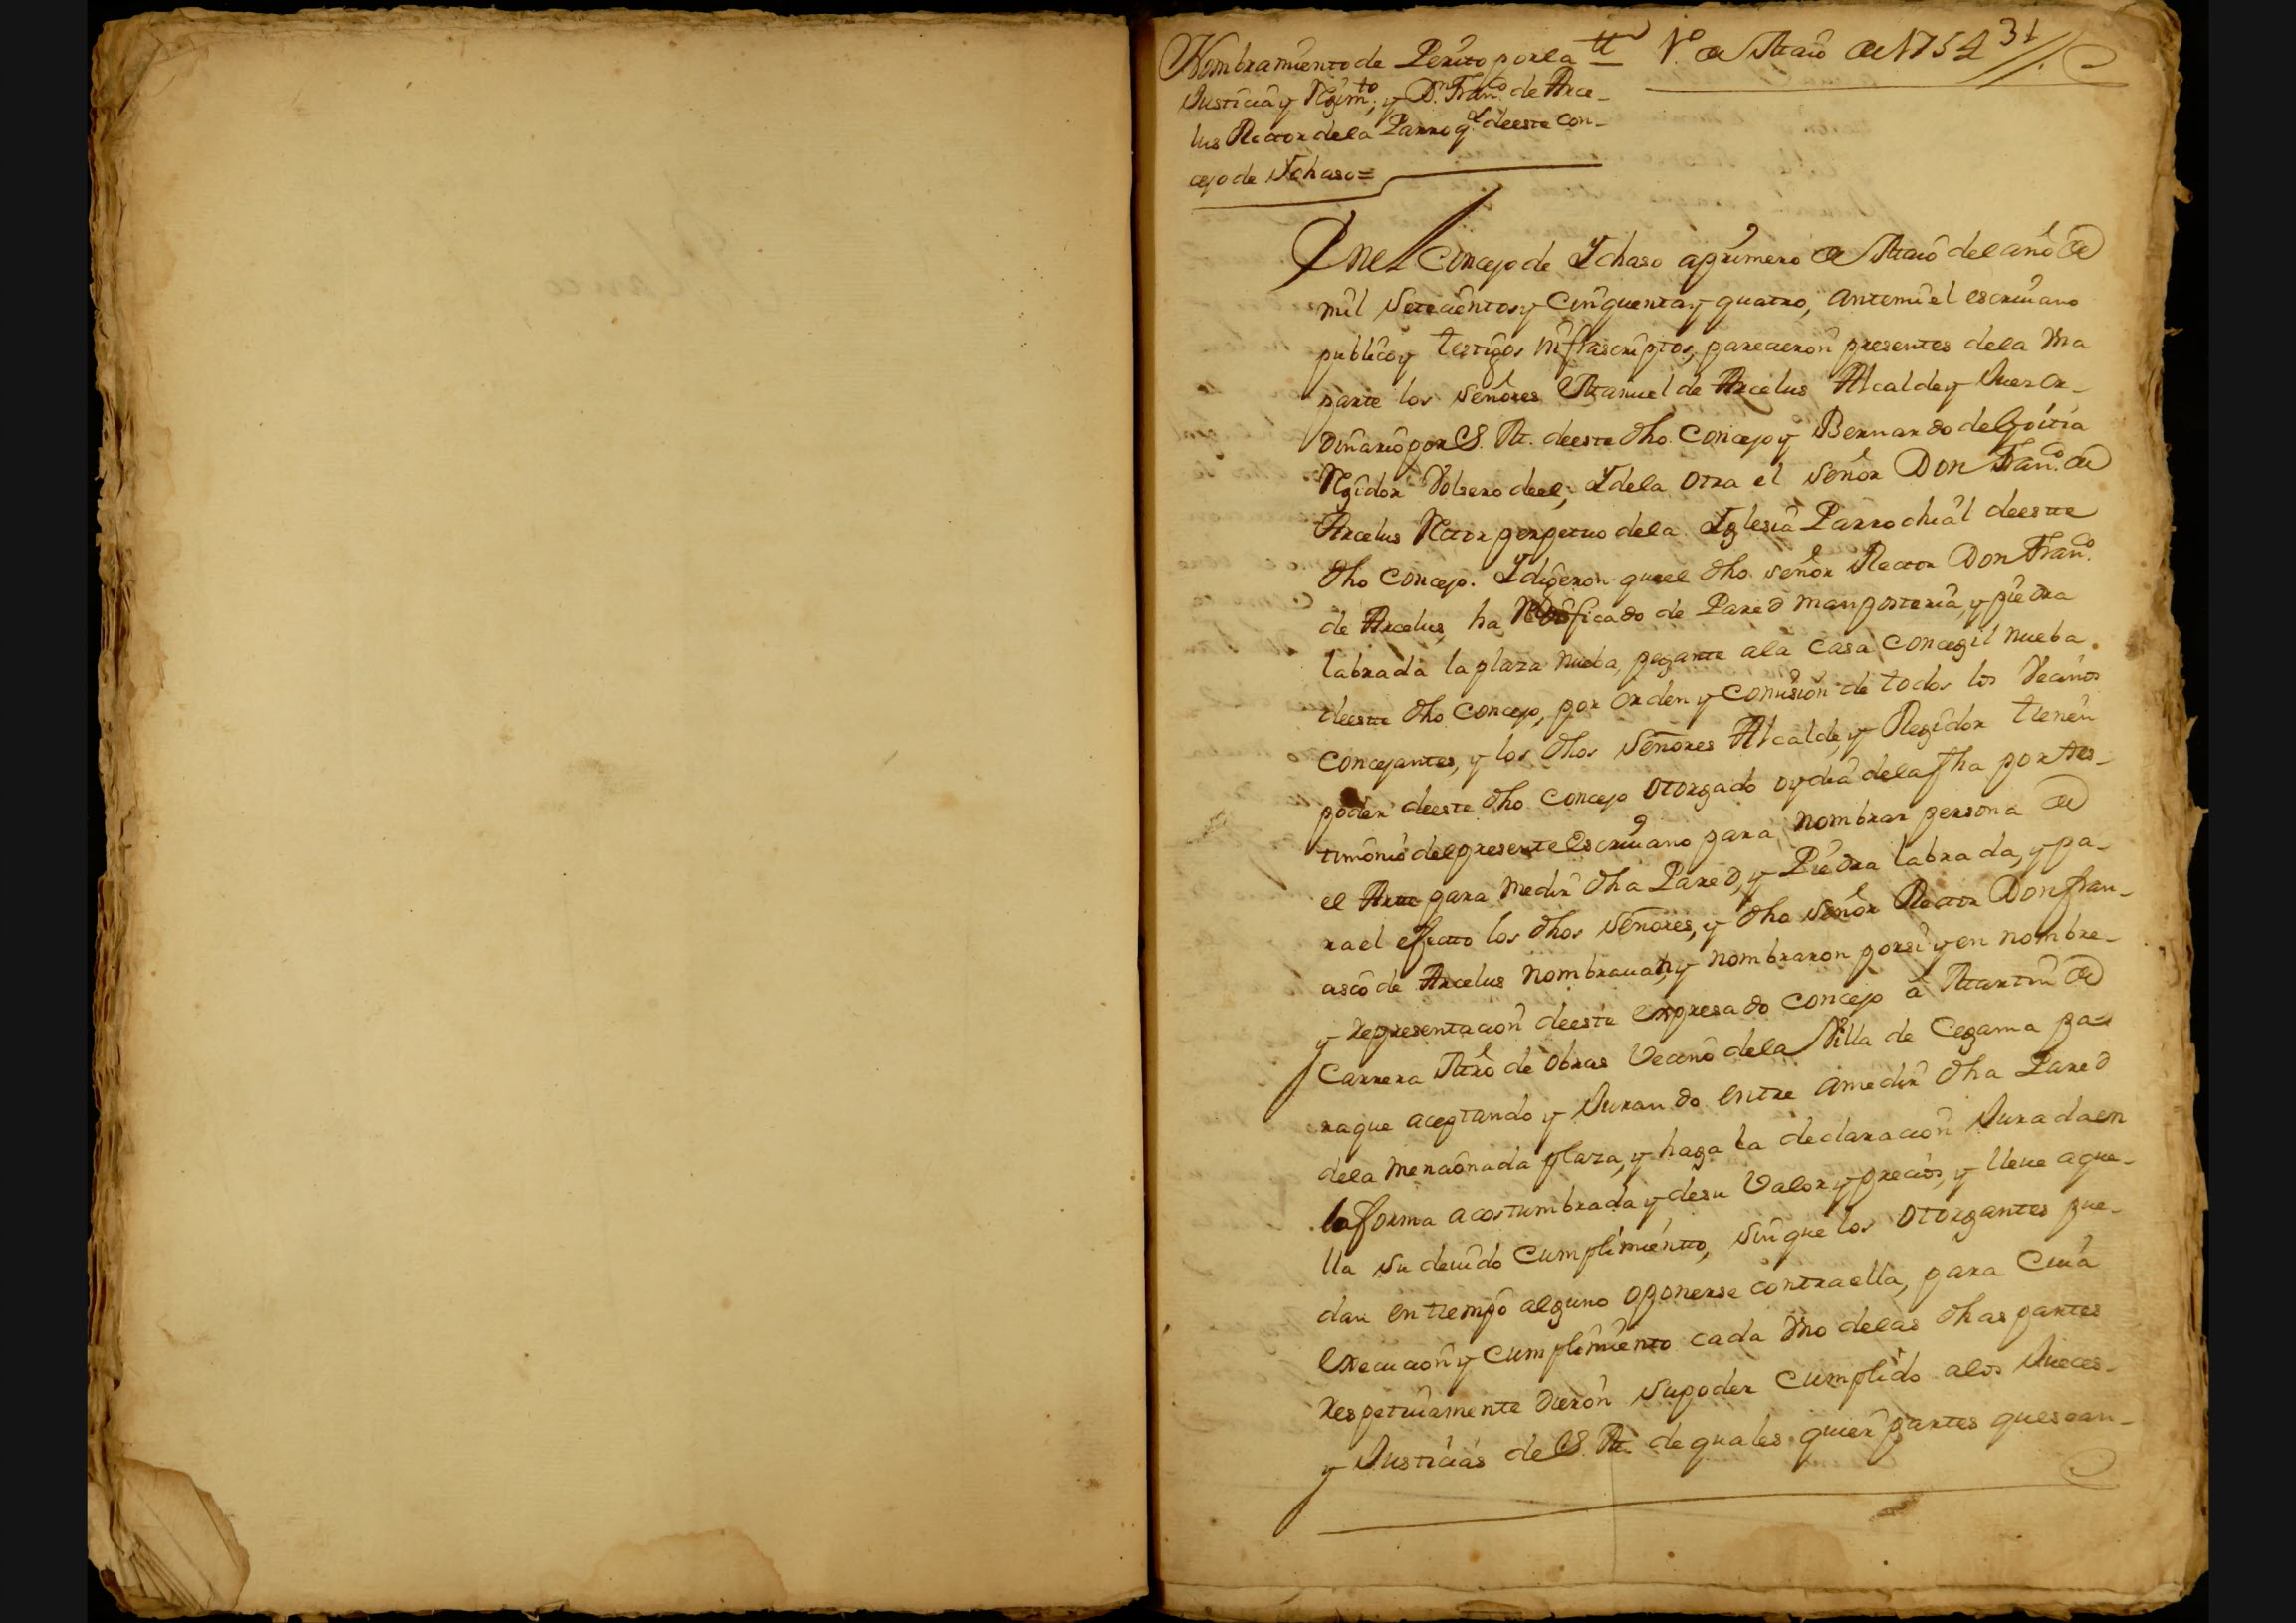 Nombramiento de Perito por la
Justicia y Regim.to, y D.n Fran.co de Arce-
lus Rector dela Parroq.l deeste Con-
cejo de Ichaso=
1.º de Maio de 1754
31
Enel Concejo de Ychaso a primero de Maio del año de
mil Setecientos y Cinquenta y quatro, ante mi el escriuano
publico y testigos infrascriptos, parecieron presentes dela Vna
parte los Señores Manuel de Arcelus Alcalde y Juez or-
dinario por S. M. deeste dho Concejo y Bernardo de Goitia
Regidor Volsero deel; Y dela otra el Señor Don Fran.co de
Arcelus Rector perpetuo dela Yglesia Parrochial deeste
dho Concejo. Y digeron que el dho señor Rector Don Fran.co
de Arcelus, ha Redificado de Pared manposteria, y piedra
labrada la plaza nueba, pegante ala Casa Concegil nueba
deeste dho Concejo, por orden y Comision de todos los Vecinos
Concejantes, y los dhos Señores Alcalde, y Regidor tienen
poder deeste dho Concejo otorgado oy dia dela fha por tes-
timonio del presente Escriuano para nombrar persona de
el Arte para medir dha Pared, y Piedra labrada, y pa-
ra el efecto los dhos Señores, y dho Señor Rector Don fran-
cisco de Arcelus nombrauan, y nombraron por si y en nombre-
y representacion deeste expresado Concejo â Martin de
Carrera Mro de obras Vecino dela Villa de Cegama pa-
raque aceptando y Jurando entre amedir dha Pared
dela mencionada plaza, y haga la declaracion Jurada en
la forma acostumbrada y desu Valor y precios, y lleue aque-
lla su deuido Cumplimiento, sin que los otorgantes pue-
dan en tiempo alguno oponerse contra ella, para Cuia
execucion y Cumplimiento cada Vno delas dhas partes
respetiuamente dieron su poder Cumplido alos Jueces-
y Justicias de S. M. de quales quier partes que sean-